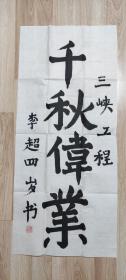 三峡工程
千秋偉業
李超四岁书